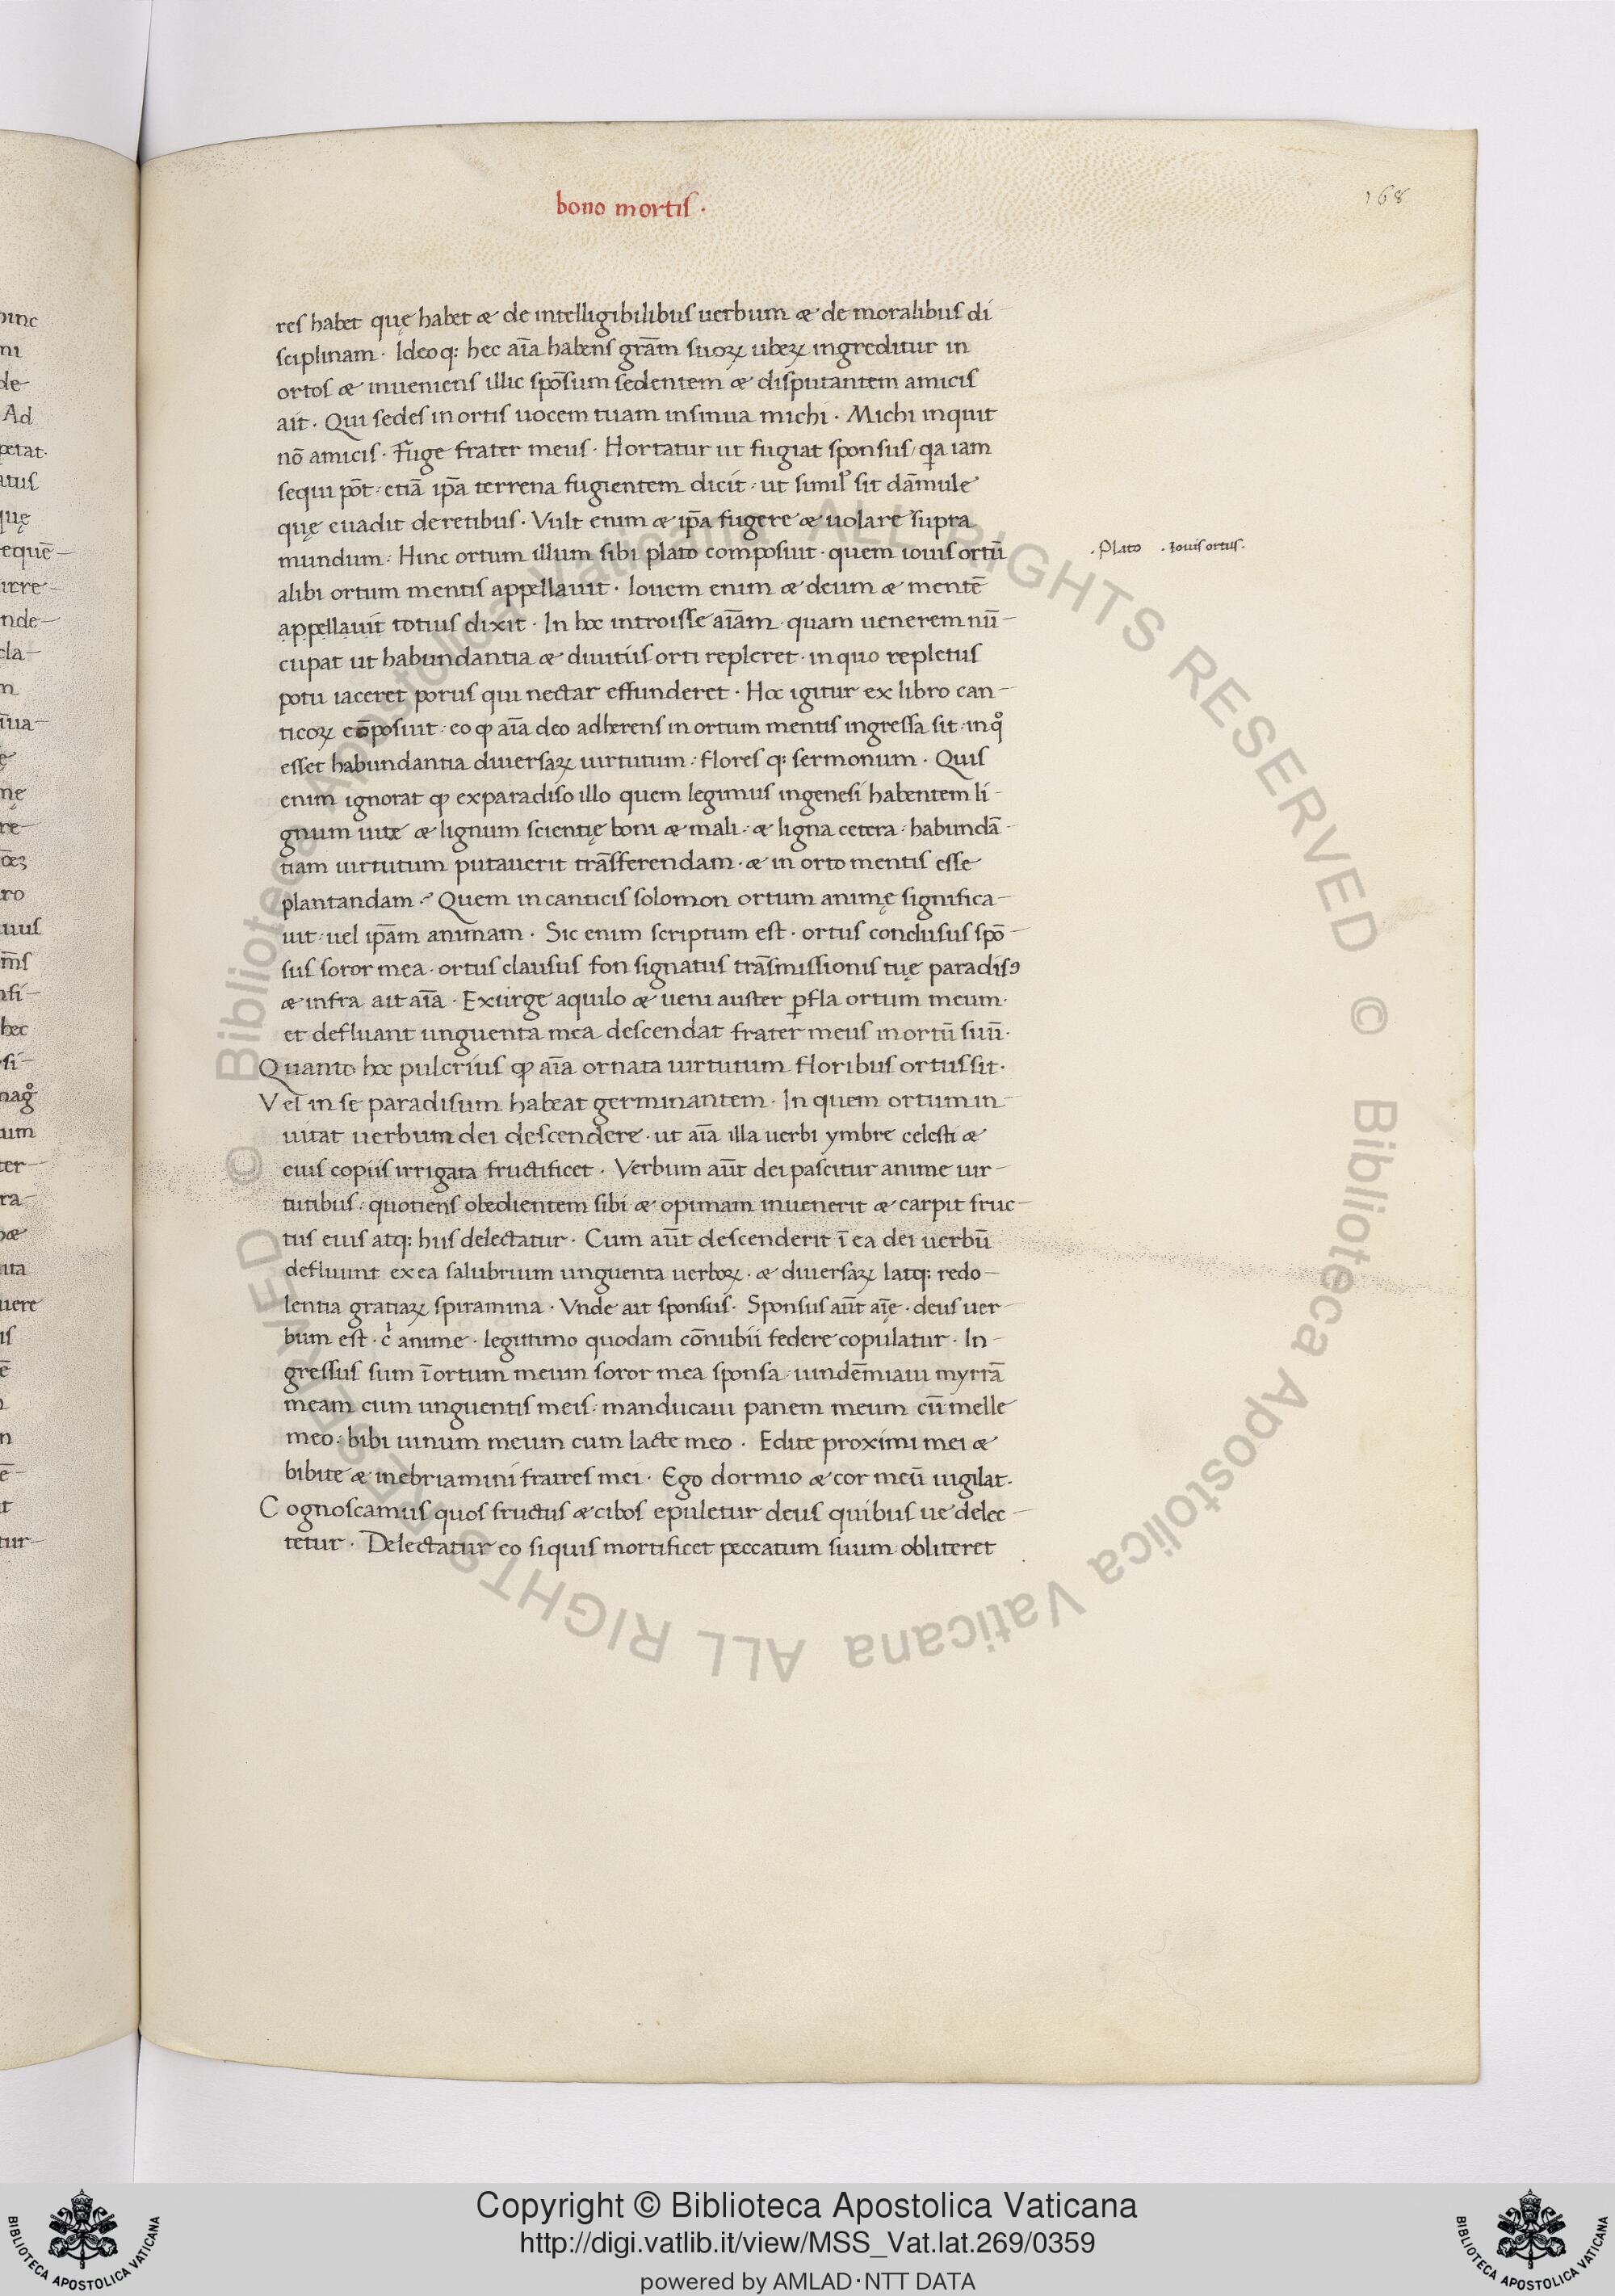 bono mortis ·
168
res habet quę habet & de intelligibilibus uerbum & de moralibus di
sciplinam · Ideoq: hec aīa habens grām suoꝝ uberꝝ ingreditur in
ortos & inueniens illic spōsum sedentem & disputantem amicis
ait · Qui sedes in ortis uocem tuam insinua michi · Michi inquit
nō amicis · Fuge frater meus · Hortatur ut fugiat sponsus / qa iam
sequi pōt : etiā ipa terrena fugientem dicit : ut simil sit dāmule
quę euadit de retibus · Vult enim & ipa fugere & uolare supra
mundum : Hinc ortum illum sibi plato composiut · quem iouis ortū
· Plato · Iouis ortus ·
alibi ortum mentis appellauit · Iouem enim & deum & mentē
appellauit totius dixit · In hoc introisse aīam · quam uenerem nū-
cupat ut habundantia & diuitiis orti repleret · in quo repletus
potu iaceret porus qui nectar effunderet · Hoc igitur ex libro can-
ticoꝝ cōposiut : eo qp aīa deo adherens in ortum mentis ingressa sit : in qo
esset habundantia diuersaꝝ uirtutum : flores q: sermonum · Quis
enim ignorat qp ex paradiso illo quem legimus in genesi habentem li-
gnum uite & lignum scientię boni & mali : & ligna cetera : habundā-
tiam uirtutum putauerit trāsferendam · & in orto mentis esse
plantandam ? Quem in canticis solomon ortum animę significa-
uit : uel ipam animam · Sic enim scriptum est · ortus conclusus spō-
sus soror mea · ortus clausus fon signatus trāsmissionis tuę paradisꝯ
& infra ait aīa · Exurge aquilo & ueni auster pfla ortum meum ·
et defluant unguenta mea descendat frater meus in ortū suū ·
Quanto hoc pulcrius qp aīa ornata uirtutum floribus ortus sit ·
Vel in se paradisum habeat germinantem · In quem ortum in-
uitat uerbum dei descendere · ut aīa illa uerbi ymbre celesti &
eius copiis irrigata fructificet · Verbum aūt dei pascitur anime uir-
tutibus : quotiens obedientem sibi & opimam inuenerit & carpit fruc-
tus eius atq: hiis delectatur · Cum aūt descenderit ī ea dei uerbū
defluunt ex ea salubrium unguenta uerboꝝ · & diuersaꝝ latq: redo-
lentia gratiaꝝ spiramina · Vnde ait sponsus · Sponsus aūt aīę · deus uer-
bum est · c anime · legitimo quodam cōnubii federe copulatur · In-
gressus sum ī ortum meum soror mea sponsa : uindēmiaui myrrā
meam cum unguentis meis : manducaui panem meum cū melle
meo : bibi uinum meum cum lacte meo · Edite proximi mei &
bibite & inebriamini fratres mei · Ego dormio & cor meū uigilat ·
Cognoscamus quos fructus & cibos epuletur deus quibus ue delec-
tetur · Delectatur eo si quis mortificet peccatum suum obliteret
Copyright © Biblioteca Apostolica Vaticana
http://digi.vatlib.it/view/MSS_Vat.lat.269/0359
powered by AMLAD·NTT DATA